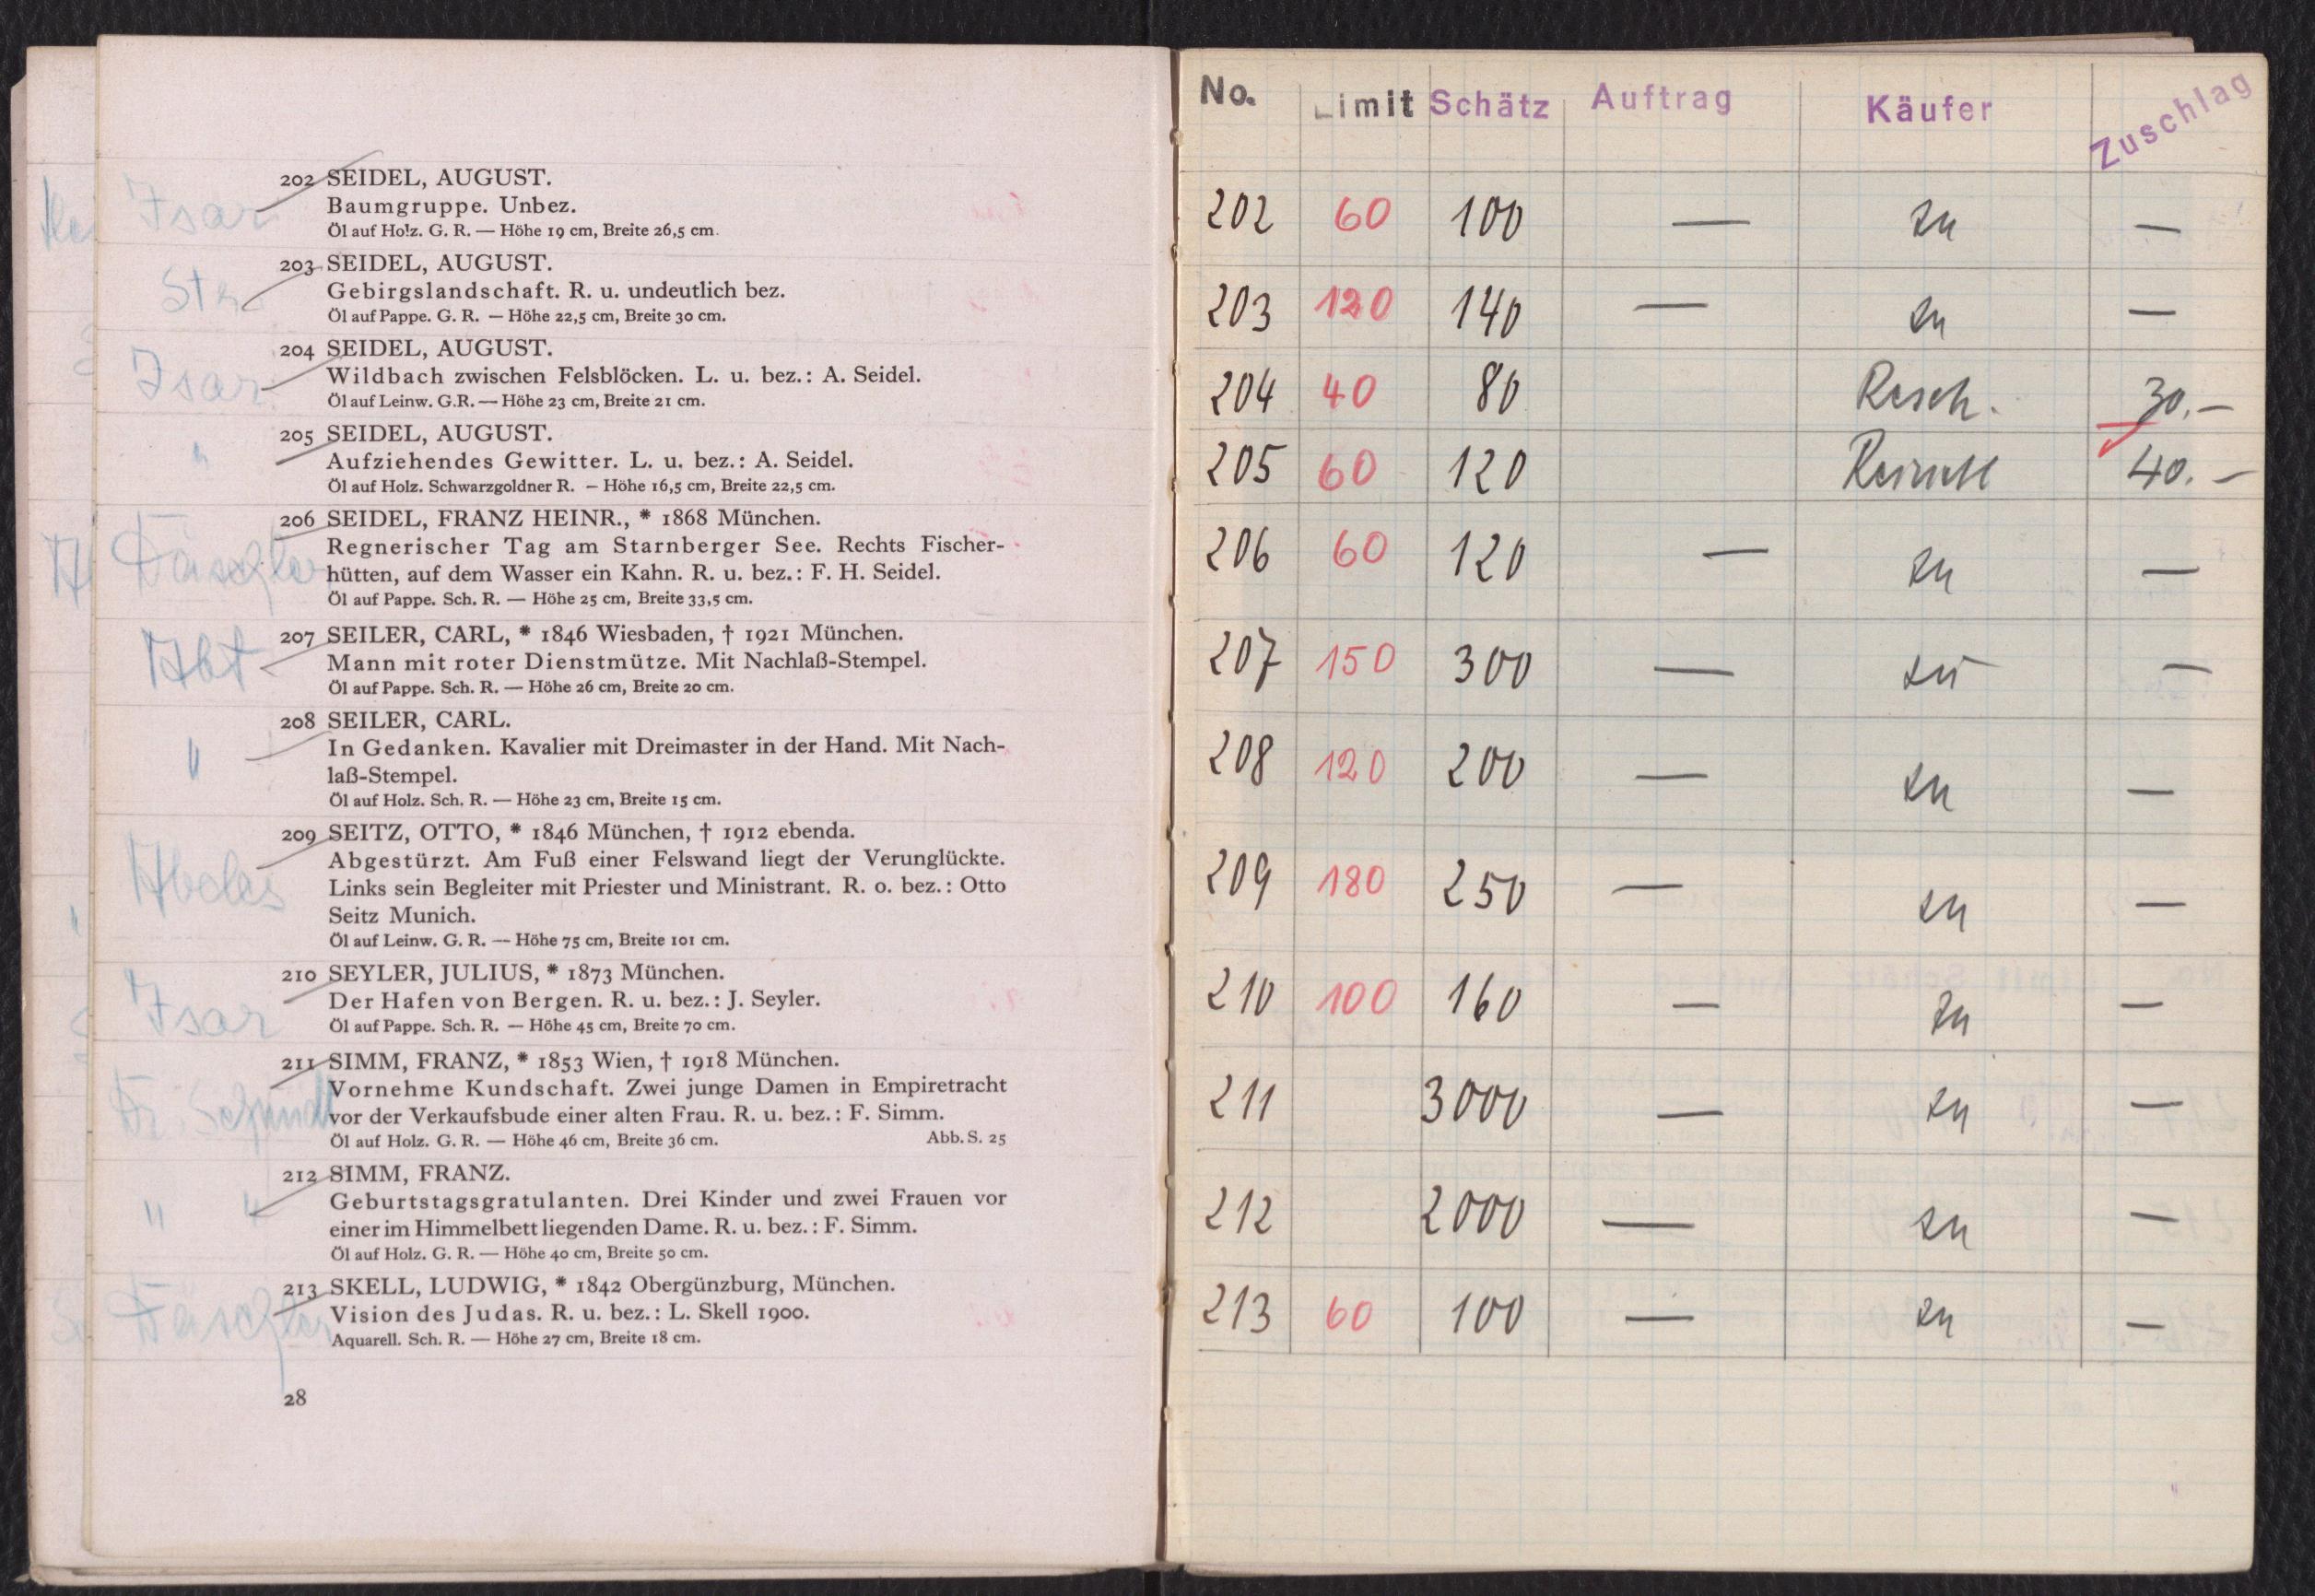 Isar
202 SEIDEL, AUGUST.
Baumgruppe. Unbez.
Öl auf Holz. G. R. — Höhe 19 cm, Breite 26,5 cm.
203 SEIDEL, AUGUST.
Gebirgslandschaft. R. u. undeutlich bez.
Öl auf Pappe. G. R. — Höhe 22,5 cm, Breite 30 cm.
Isar
204 SEIDEL, AUGUST.
Wildbach zwischen Felsblöcken. L. u. bez.: A. Seidel.
Öl auf Leinw. G.R. — Höhe 23 cm, Breite 21 cm.
"
205 SEIDEL, AUGUST.
Aufziehendes Gewitter. L. u. bez.: A. Seidel.
Öl auf Holz. Schwarzgoldner R. — Höhe 16,5 cm, Breite 22,5 cm.
206 SEIDEL, FRANZ HEINR., * 1868 München.
Regnerischer Tag am Starnberger See. Rechts Fischer-
hütten, auf dem Wasser ein Kahn. R. u. bez.: F. H. Seidel.
Öl auf Pappe. Sch. R. — Höhe 25 cm, Breite 33,5 cm.
Abt
207 SEILER, CARL, * 1846 Wiesbaden, † 1921 München.
Mann mit roter Dienstmütze. Mit Nachlaß-Stempel.
Öl auf Pappe. Sch. R. — Höhe 26 cm, Breite 20 cm.
"
208 SEILER, CARL.
In Gedanken. Kavalier mit Dreimaster in der Hand. Mit Nach-
laß-Stempel.
Öl auf Holz. Sch. R. — Höhe 23 cm, Breite 15 cm.
209 SEITZ, OTTO, * 1846 München, † 1912 ebenda.
Abgestürzt. Am Fuß einer Felswand liegt der Verunglückte.
Links sein Begleiter mit Priester und Ministrant. R. o. bez.: Otto
Seitz Munich.
Öl auf Leinw. G. R. — Höhe 75 cm, Breite 101 cm.
Isar
210 SEYLER, JULIUS, * 1873 München.
Der Hafen von Bergen. R. u. bez.: J. Seyler.
Öl auf Pappe. Sch. R. — Höhe 45 cm, Breite 70 cm.
211 SIMM, FRANZ, * 1853 Wien, † 1918 München.
Vornehme Kundschaft. Zwei junge Damen in Empiretracht
vor der Verkaufsbude einer alten Frau. R. u. bez.: F. Simm.
Öl auf Holz. G. R. — Höhe 46 cm, Breite 36 cm. Abb. S. 25
" "
212 SIMM, FRANZ.
Geburtstagsgratulanten. Drei Kinder und zwei Frauen vor
einer im Himmelbett liegenden Dame. R. u. bez.: F. Simm.
Öl auf Holz. G. R. — Höhe 40 cm, Breite 50 cm.
213 SKELL, LUDWIG, * 1842 Obergünzburg, München.
Vision des Judas. R. u. bez.: L. Skell 1900.
Aquarell. Sch. R. — Höhe 27 cm, Breite 18 cm.
28
No. Limit Schätz Auftrag Käufer Zuschlag
202 60 100 — zu —
203 120 140 — zu —
204 40 80 30.—
205 60 120 40.—
206 60 120 — zu —
207 150 300 — zu —
208 120 200 — zu —
209 180 250 — zu —
210 100 160 — zu —
211 3000 — zu —
212 2000 — zu —
213 60 100 — zu —